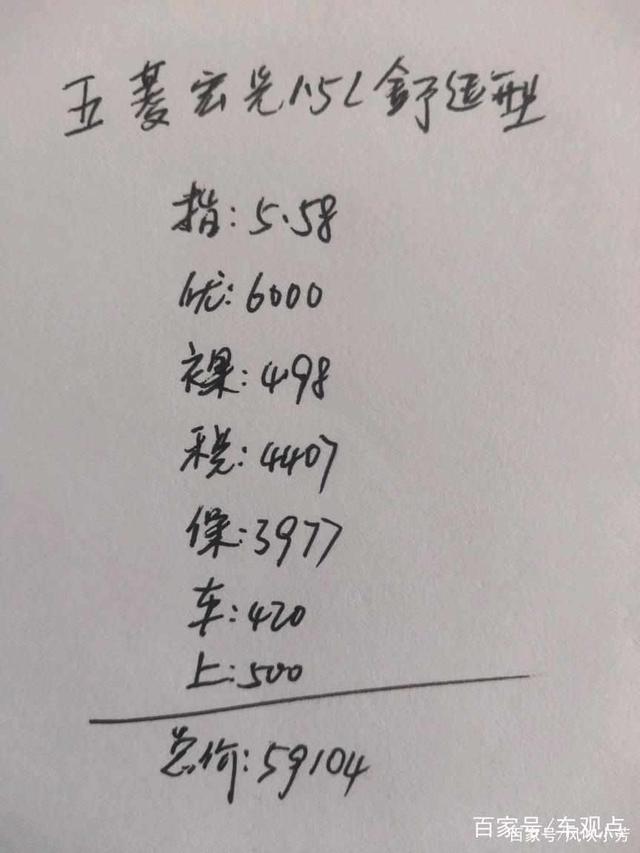 五菱宏光1.5L舒适型
指:5.58
优:6000
裸:4.98
税:4407
保:3977
车:420
上:500
总价:59104
百家号/车观点
百家号/风吹小芳